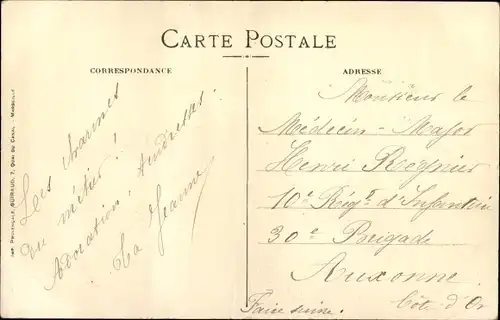 CARTE POSTALE
CORRESPONDANCE
ADRESSE
Les charmes
du métier!
Adoration, tendresses.
Ta Jeanne
Monsieur le
Médecin-Major
Henri Regnier
10e Régt d'Infanterie
30e Brigade
Auxonne
Côte d'Or
Faire suivre.
IMP. PROVENÇALE, GUIRAUD, 7, QUAI DU CANAL. - MARSEILLE